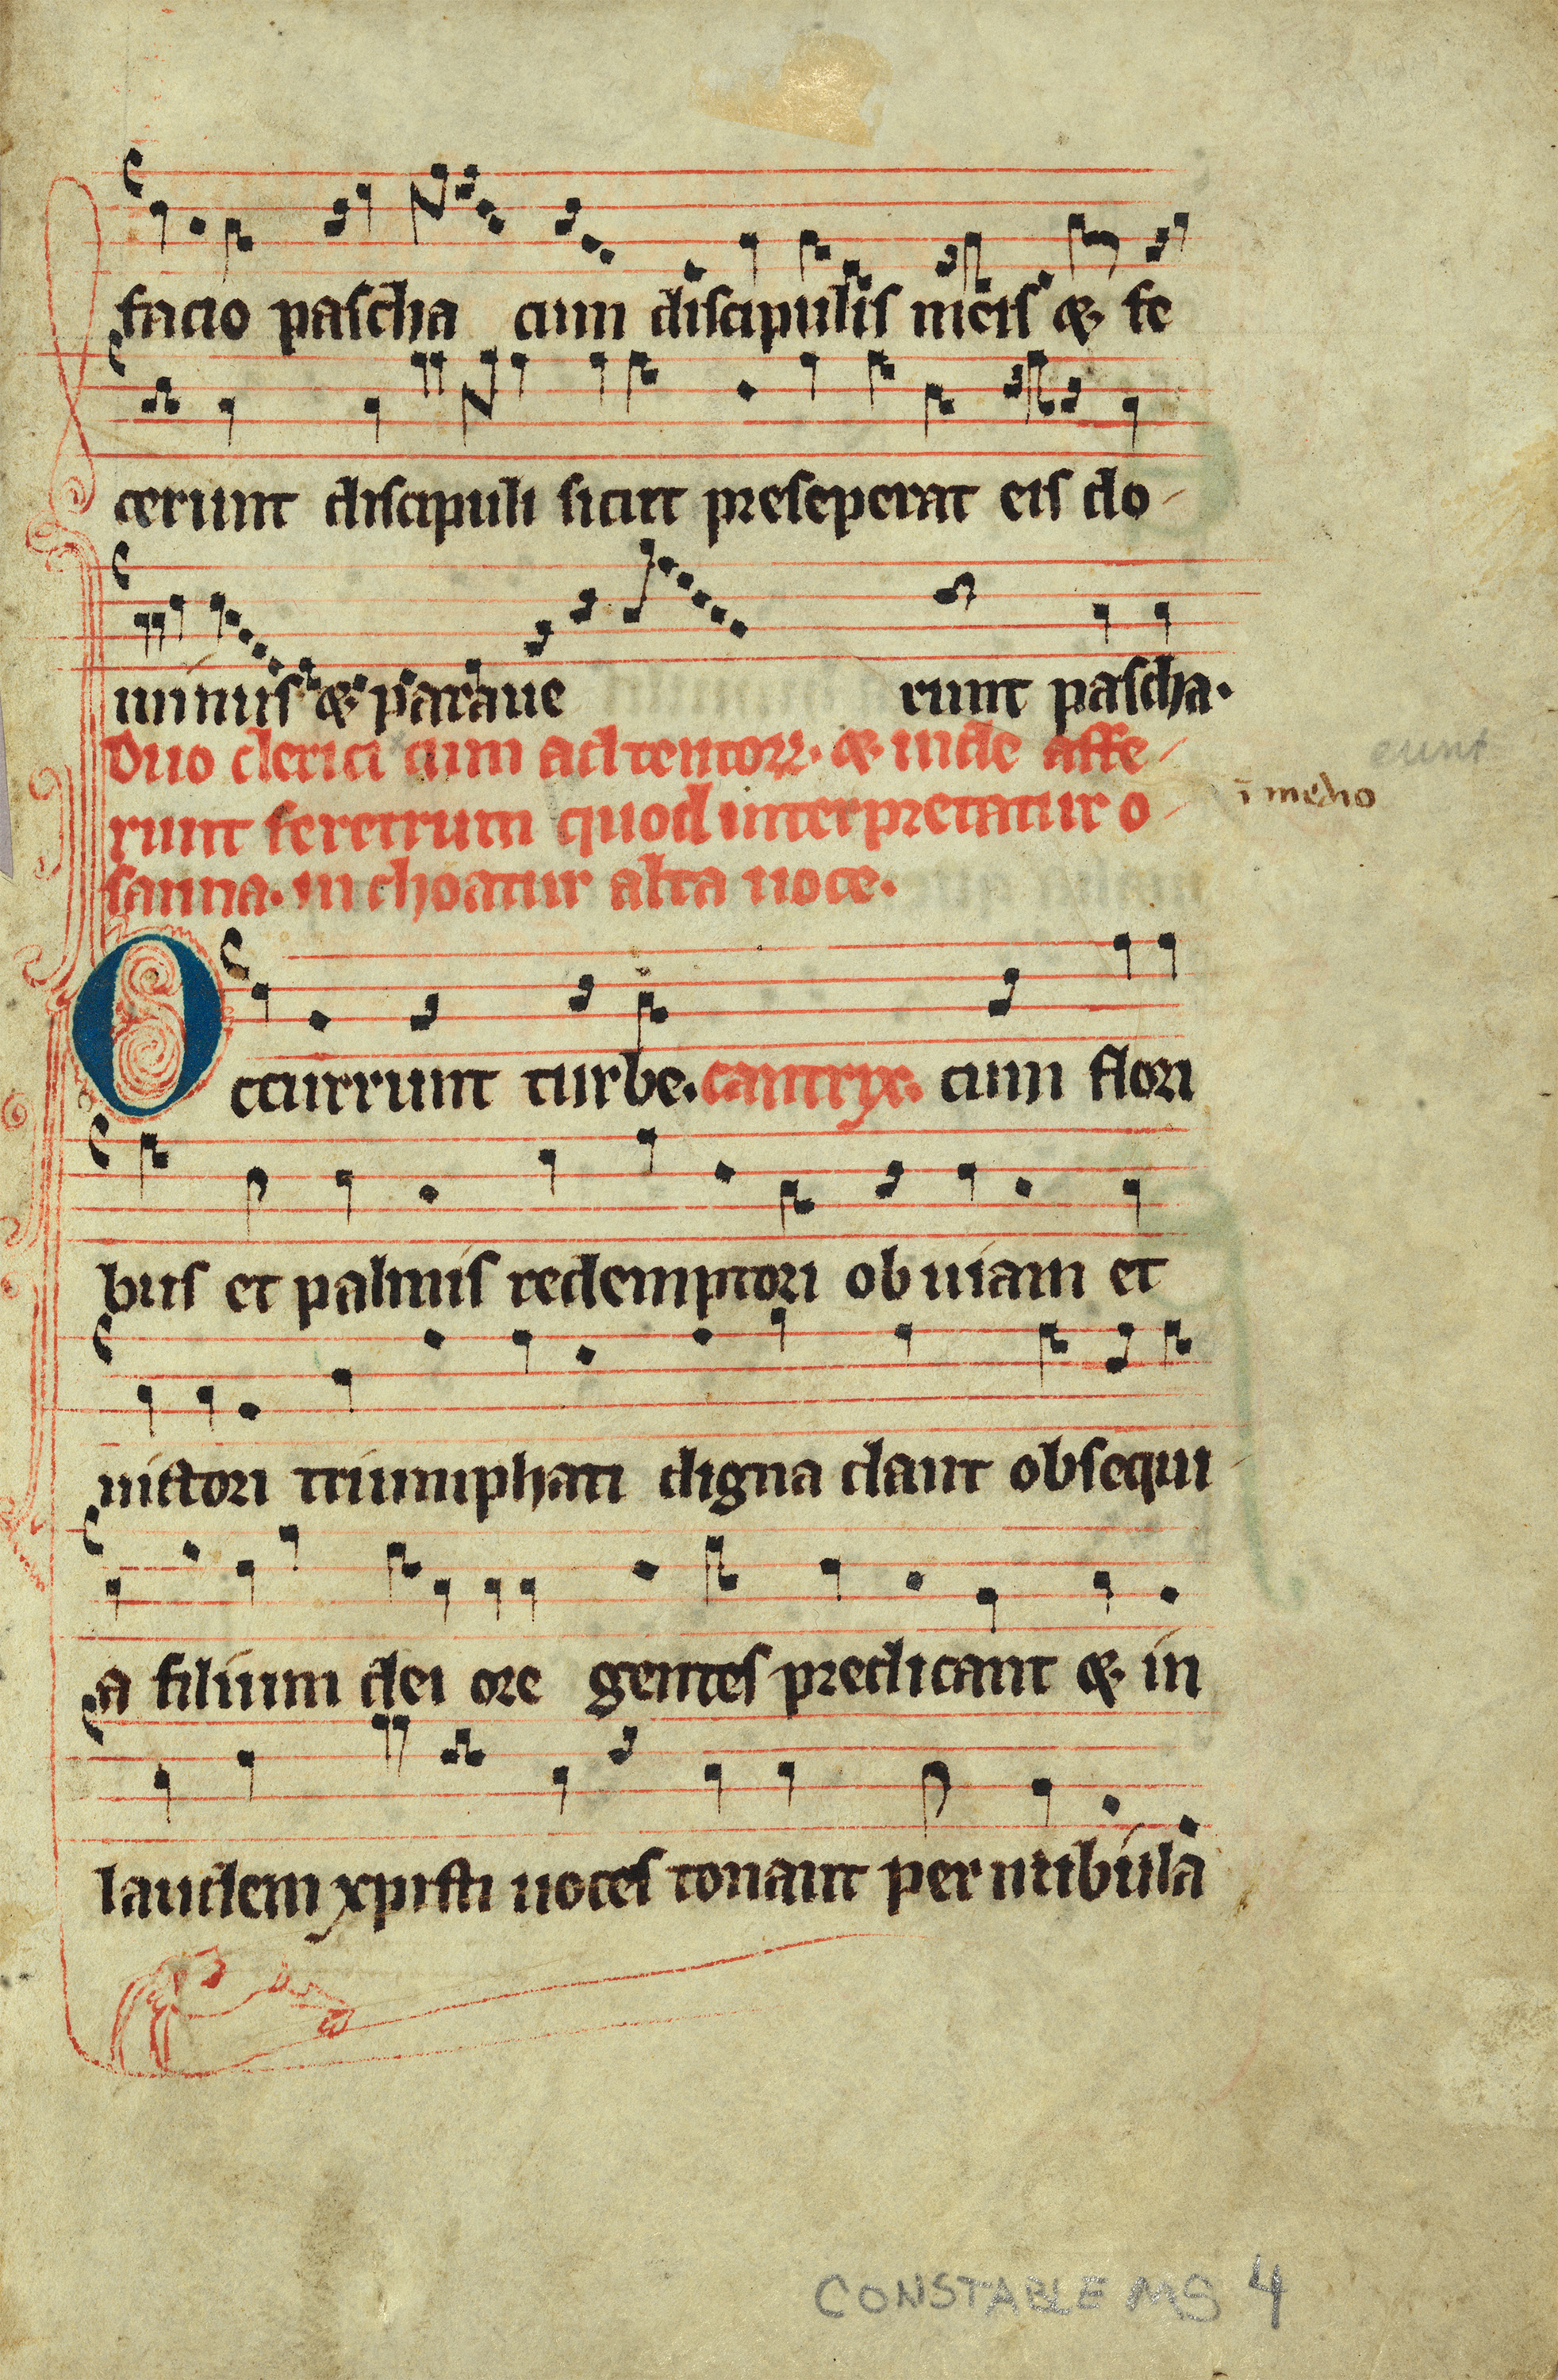 facio pascha cum discipulis meis & fe
cerunt discipuli sicut preseperat eis do-
minus & paraue runt pascha.
Duo clerici cum ad tentorr. & inde affe-
eunt
ī medio
runt feretrum quod interpretatur o-
sanna. in choatur alta uoce.
Occurrunt turbe. cantrix. cum flori
bus et palmis redemptori obuiam et
uictori triumphati digna dant obsequi-
a filium dei ore gentes predicant & in
laudem xpisti uoces tonant per ntibula
CONSTABLE MS 4